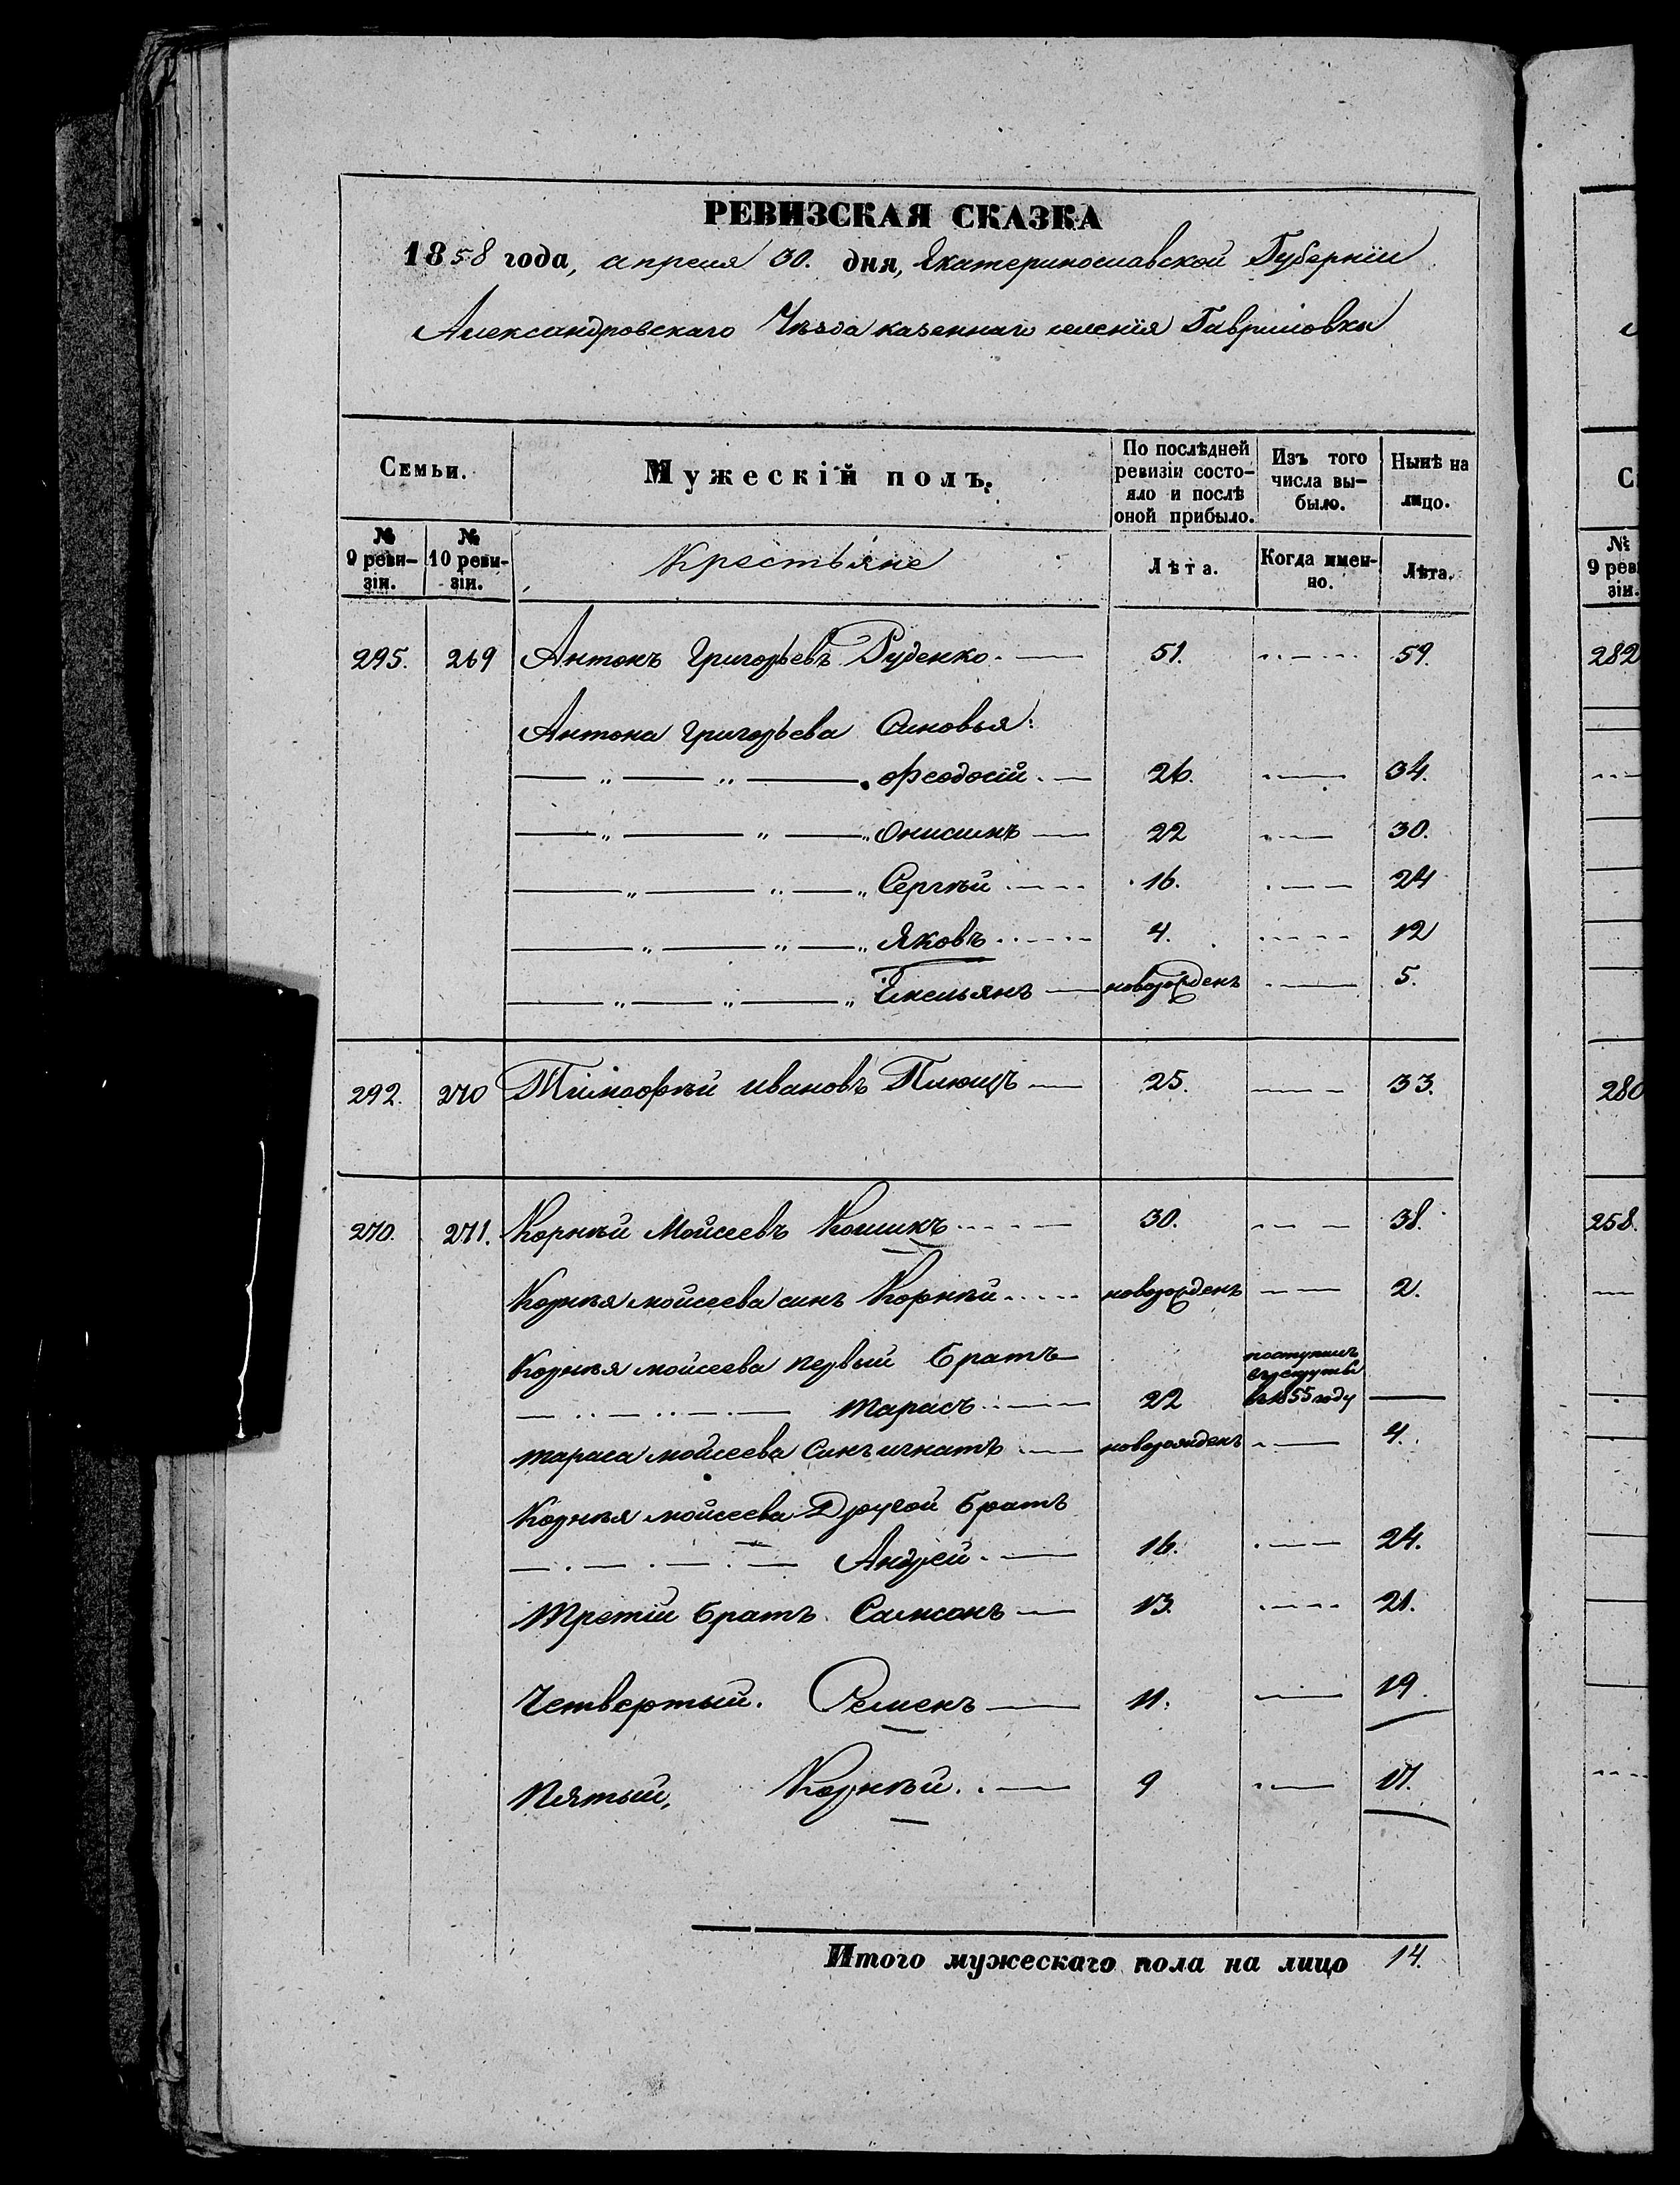 РЕВИЗСКАЯ СКАЗКА
1858 года, апреля 30. дня, Екатеринославской Губерніи
Александровскаго Уѣзда казеннаго селенія Гавриловки
Семьи.
Мужескій полъ.
По послѣдней ревизіи состо-
яло и послѣ
оной прибыло.
Изъ того
числа вы-
было.
Нынѣ на
лицо.
№ 9 реви-
зіи.
№ 10 реви-
зіи.
Крестьяне
Лѣта.
Когда имен-
но.
Лѣта.
295. 269 Антонъ Григорьевъ Руденко. 51. 59.
Антона Григорьева Сыновья:
Феодосій. 26. 34.
Онисимъ 22 30.
Сергѣй 16. 24
Яковъ 4. 12
Емельянъ новорожденъ 5.
292. 270 Тимофѣй Ивановъ 25. 33.
270. 271. Корнѣй Мойсеевъ Кошикъ 30. 38.
Корнѣя мойсеева сынъ Корнѣй новорожденъ 2.
Корнѣя мойсеева первый братъ
Тарасъ 22 поступилъ
въ рекруты
въ 1855 году
тараса мойсеева Сынъ игнатъ новорожденъ 4.
Корнѣя мойсеева Другой братъ
Андрей 16. 24.
Третій братъ Самсонъ 13. 21.
Четвертый. Семенъ 11. 19.
Пятый, Корнѣй 9 17.
Итого мужескаго пола на лицо 14.
С
№
9 рев
зіи.
282
280
258.